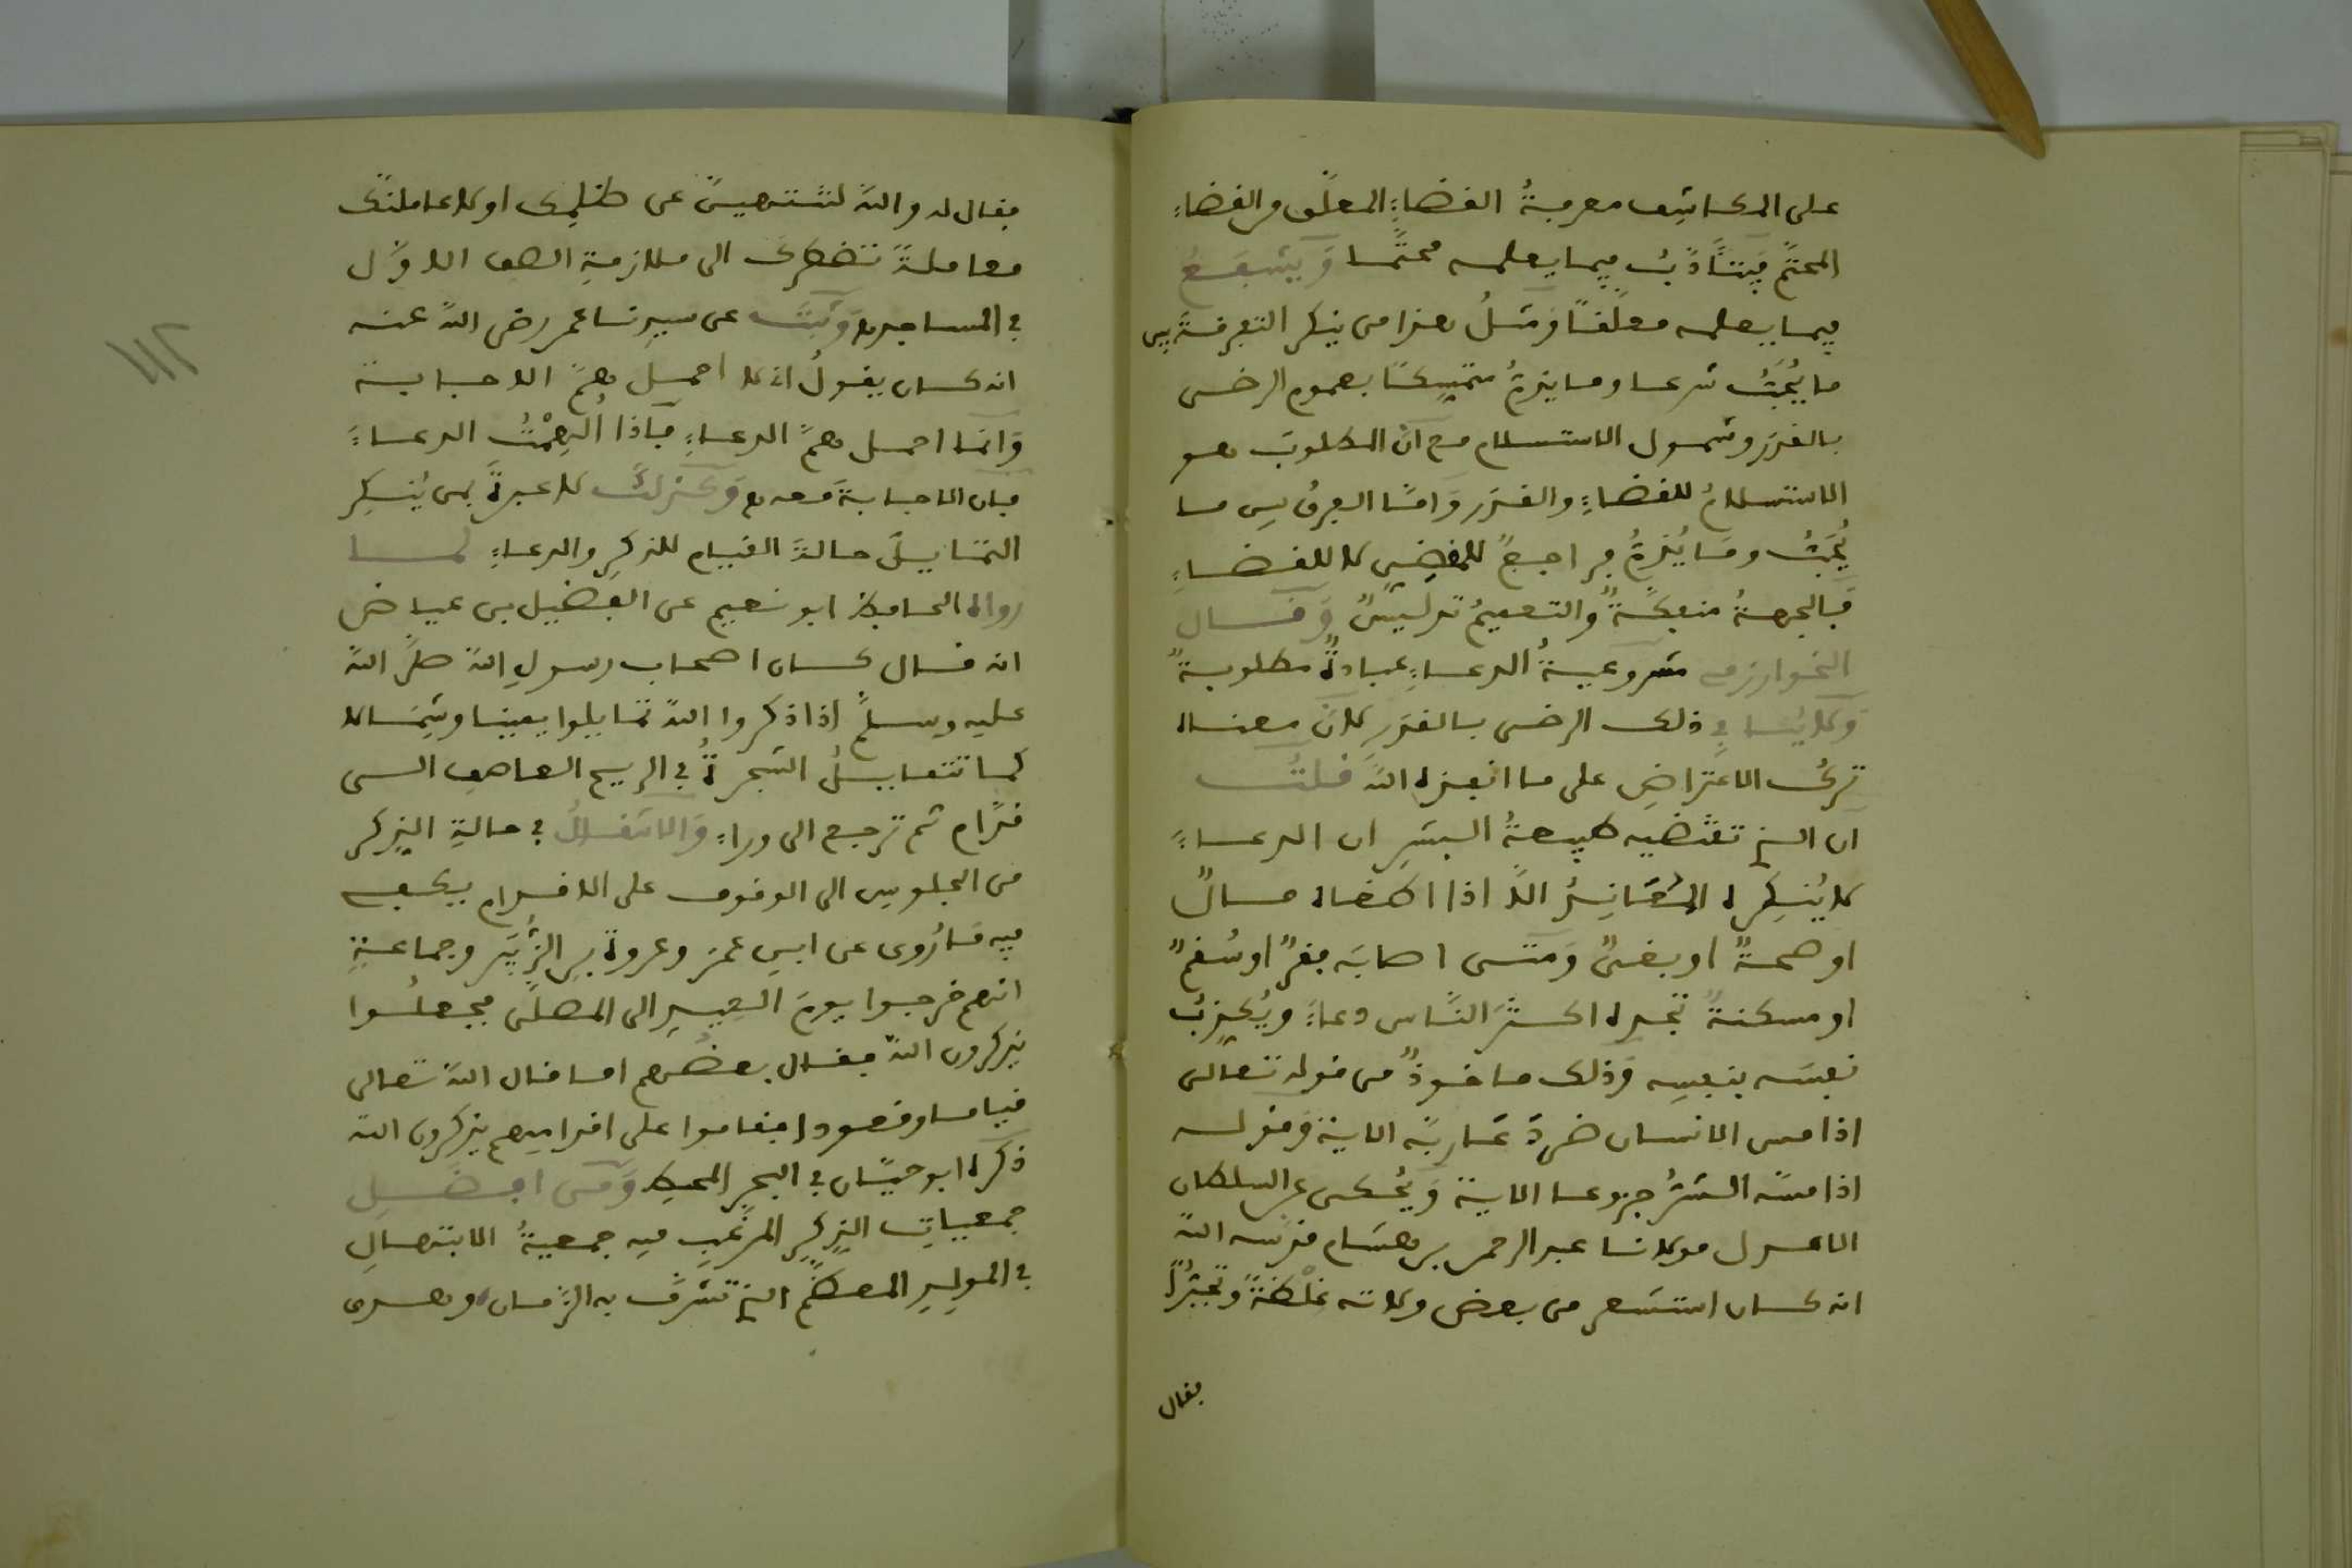 على المكاشف معرفةُ القضاءِ المعلَّق من القضاءِ
المحتَّم فيتأدَّبُ فيما يعلمه محتَّما وَيَشفَعُ
فيما يعلمه معلَّقًا ومثلُ هذا من ينكر التفرقةَ بين
ما يُحَبُّ شرعا وما يذمُّ متمسِّكًا بعموم الرضى
بالقدَر وشمول الاستسلام مع انّ المطلوبَ هو
الاستسلامُ للقضاءِ والقدَر وَامّا الفرقُ بين ما
يُحَبُّ ومَا يُذمُّ فراجعٌ للمقضِي لا للقضاءِ
فَالجهةُ منفكّةٌ والتعميمُ تدليسٌ وَقَال
الخوارزمي مشروعيةُ الدعاءِ عبادةٌ مطلوبةٌ
وَلا ينافي ذلك الرضى بالقدَرِ لانّ معناه
تركُ الاعتراضِ على ما انفذه اللهُ قلتُ
ان الذي تقتضيه طبيعةُ البشرِ ان الدعاءَ
لا يُنكِره الانسانُ الّا اذا اطغاه مالٌ
او صحةٌ او بغىٌ وَمتى اصابَه فقرٌ او سُقمٌ
او مسكنةٌ تجده اكثرَ النّاس دعاءً ويُكذِبُ
نفسَه بنفسِه وذلك ماخوذٌ من قوله تعالى
اذا مس الانسان ضر دَعَا ربَّه الاية وَقوله
اذا مسّه الشرُّ جزوعا الاية وَيُحكى عن السلطان
الاعدل مولانا عبد الرحمن بن هشام قدّسه اللهُ
انه كان استشعر من بعض ولاته غِلْظةً وتجبُّرًا
فقال
فقال له والله لتنتهينَّ عن ظلمِك او لاعاملنَّك
معاملةً تضطرك الى ملازمةِ الصف الاوَّل
في المساجد وَثبَتَ عن سيدنا عمر رضى اللهُ عنه
انه كان يقولُ انى لا احمل همَّ الاجابة
وَانّما احمل همَّ الدعاءِ فَاذا أُلهِمْتُ الدعاءَ
فان الاجابةَ معه وَكذلكَ لا عبرةَ بمن يُنكِر
التمايلَ حالةَ القيام للذكرِ والدعاءِ لما
رواه الحافظ ابو نعيم عن الفضيل بن عياض
انه قال كان اصحاب رسولِ اللهِ صلَّى اللهُ
عليه وسلَّم اذا ذكروا اللهَ تمايلوا يمينا وشِمَالا
كما تتمايلُ الشجرةُ في الريح العاصف الى
قدَّام ثم ترجع الى وراءٍ وَالانتقالُ في حالةِ الذكر
من الجلوس الى الوقوف على الاقدام يكفى
فيه مَا رُوى عن ابنِ عمَر وعروةَ بنِ الزُّبَيْر وجماعةٍ
انهم خرجوا يومَ العيدِ الى المصلَّى فجعلُوا
يذكرون اللهَ فقال بعضُهم اما قال اللهُ تعالى
قياما وقعودا فقاموا على اقدامِهم يذكرون اللهَ
ذكره ابو حيَّان في البحرِ المحيط وَمن افضلِ
جمعياتِ الذِّكرِ المرغَّبِ فيه جمعيةُ الابتهالِ
في المولِدِ المعظَّمِ الذي تشرَّف به الزَّمان وهدى